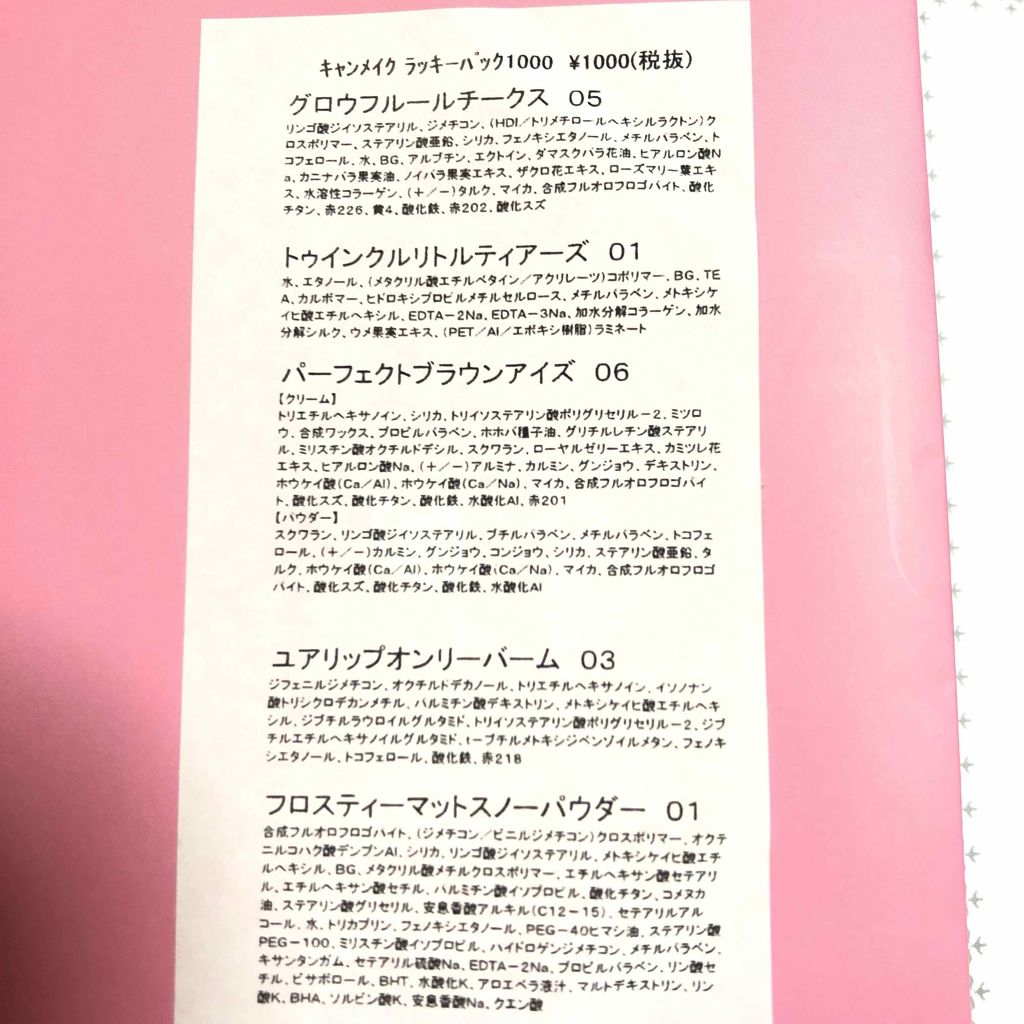 キャンメイク ラッキーパック1000 ¥1000(税抜)
グロウフルールチークス 05
リンゴ酸ジイソステアリル、ジメチコン、(HDI/トリメチロールヘキシルラクトン)ク
ロスポリマー、ステアリン酸亜鉛、シリカ、フェノキシエタノール、メチルパラベン、ト
コフェロール、水、BG、アルブチン、エクトイン、ダマスクバラ花油、ヒアルロン酸N
a、カニナバラ果実油、ノイバラ果実エキス、ザクロ花エキス、ローズマリー葉エキ
ス、水溶性コラーゲン、(+/-)タルク、マイカ、合成フルオロフロゴパイト、酸化
チタン、赤226、黄4、酸化鉄、赤202、酸化スズ
トゥインクルリトルティアーズ 01
水、エタノール、(メタクリル酸エチルベタイン/アクリレーツ)コポリマー、BG、TE
A、カルボマー、ヒドロキシプロピルメチルセルロース、メチルパラベン、メトキシケ
イヒ酸エチルヘキシル、EDTA-2Na、EDTA-3Na、加水分解コラーゲン、加水
分解シルク、ウメ果実エキス、(PET/Al/エポキシ樹脂)ラミネート
パーフェクトブラウンアイズ 06
【クリーム】
トリエチルヘキサノイン、シリカ、トリイソステアリン酸ポリグリセリル-2、ミツロ
ウ、合成ワックス、プロピルパラベン、ホホバ種子油、グリチルレチン酸ステアリ
ル、ミリスチン酸オクチルドデシル、スクワラン、ローヤルゼリーエキス、カミツレ花
エキス、ヒアルロン酸Na、(+/-)アルミナ、カルミン、グンジョウ、デキストリン、
ホウケイ酸(Ca/Al)、ホウケイ酸(Ca/Na)、マイカ、合成フルオロフロゴパイ
ト、酸化スズ、酸化チタン、酸化鉄、水酸化Al、赤201
【パウダー】
スクワラン、リンゴ酸ジイソステアリル、ブチルパラベン、メチルパラベン、トコフェ
ロール、(+/-)カルミン、グンジョウ、コンジョウ、シリカ、ステアリン酸亜鉛、タ
ルク、ホウケイ酸(Ca/Al)、ホウケイ酸(Ca/Na)、マイカ、合成フルオロフロゴ
パイト、酸化スズ、酸化チタン、酸化鉄、水酸化Al
ユアリップオンリーバーム 03
ジフェニルジメチコン、オクチルドデカノール、トリエチルヘキサノイン、イソノナン
酸トリシクロデカンメチル、パルミチン酸デキストリン、メトキシケイヒ酸エチルヘキ
シル、ジブチルラウロイルグルタミド、トリイソステアリン酸ポリグリセリル-2、ジブ
チルエチルヘキサノイルグルタミド、t-ブチルメトキシジベンゾイルメタン、フェノキ
シエタノール、トコフェロール、酸化鉄、赤218
フロスティーマットスノーパウダー 01
合成フルオロフロゴパイト、(ジメチコン/ビニルジメチコン)クロスポリマー、オクテ
ニルコハク酸デンプンAl、シリカ、リンゴ酸ジイソステアリル、メトキシケイヒ酸エチ
ルヘキシル、BG、メタクリル酸メチルクロスポリマー、エチルヘキサン酸セテアリ
ル、エチルヘキサン酸セチル、パルミチン酸イソプロピル、酸化チタン、コメヌカ
油、ステアリン酸グリセリル、安息香酸アルキル(C12-15)、セテアリルアル
コール、水、トリカプリン、フェノキシエタノール、PEG-40ヒマシ油、ステアリン酸
PEG-100、ミリスチン酸イソプロピル、ハイドロゲンジメチコン、メチルパラベン、
キサンタンガム、セテアリル硫酸Na、EDTA-2Na、プロピルパラベン、リン酸セ
チル、ビサボロール、BHT、水酸化K、アロエベラ液汁、マルトデキストリン、リン
酸K、BHA、ソルビン酸K、安息香酸Na、クエン酸